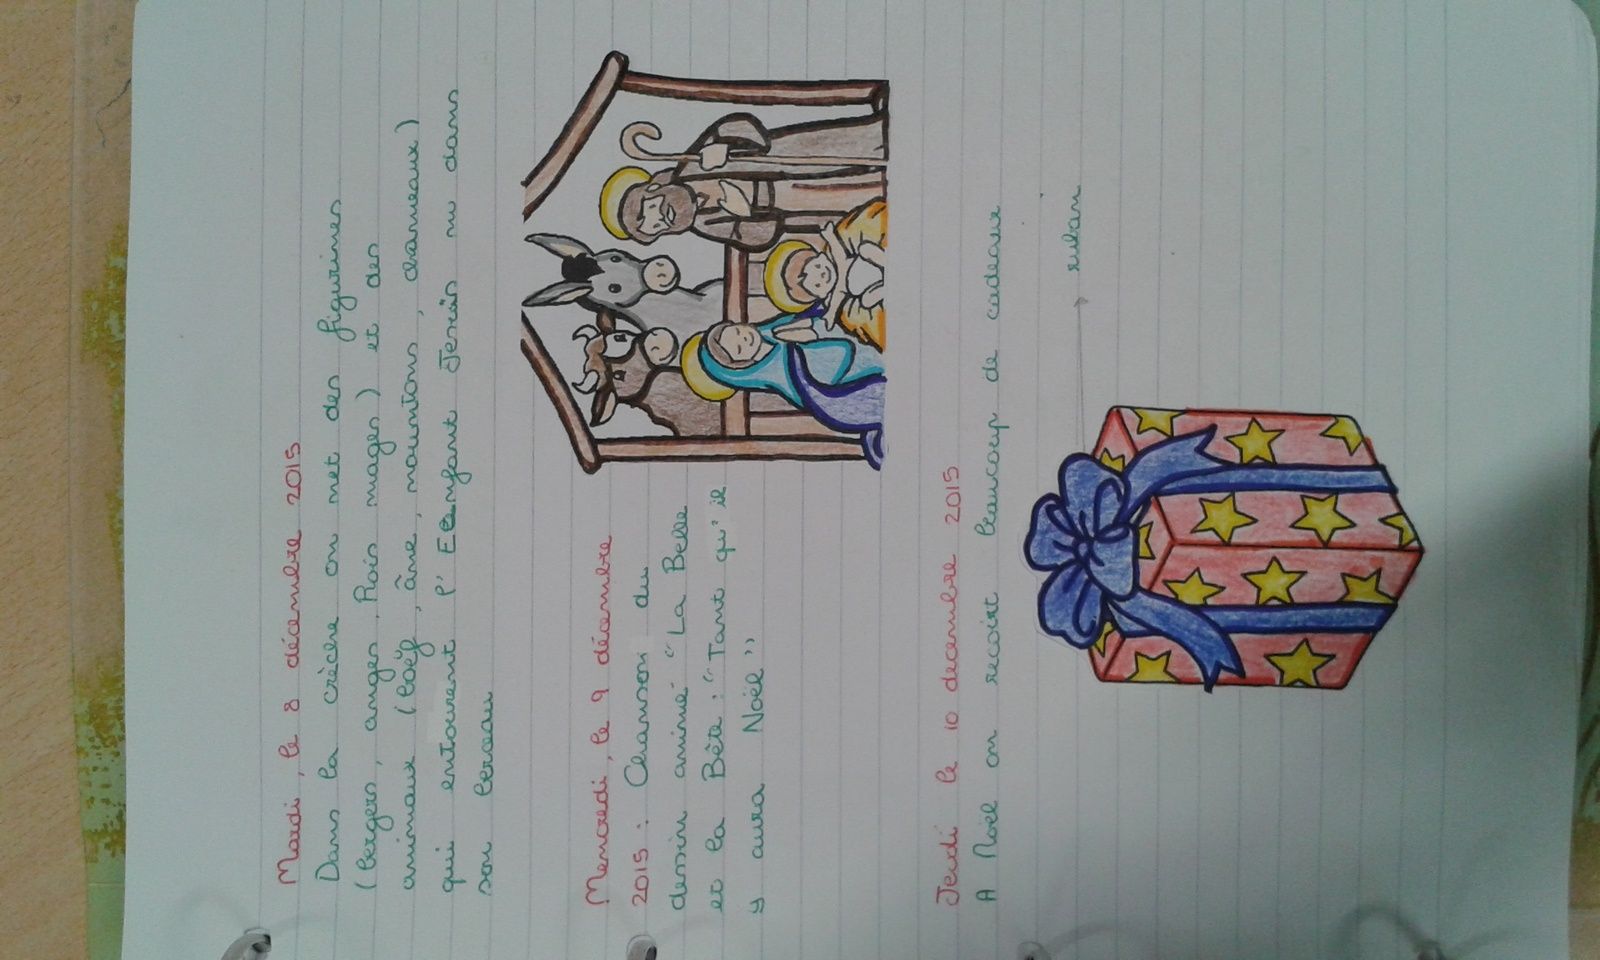 Mardi, le 8 décembre 2015
Dans la crèche on met des figurines
(bergers, anges, Rois mages) et des
animaux (bœuf, âne, mountons, chameaux)
qui entourent l'Enfant Jesús nu dans
son berceau
Mencredi, le 9 décembre
2015 : Chanson du
dessin animé "La Belle
et la Bête : "Tant qu'il
y aura Noël"
Jeudi le 10 decembre 2015
A Noël on recoit beaucoup de cadeaux
ruban